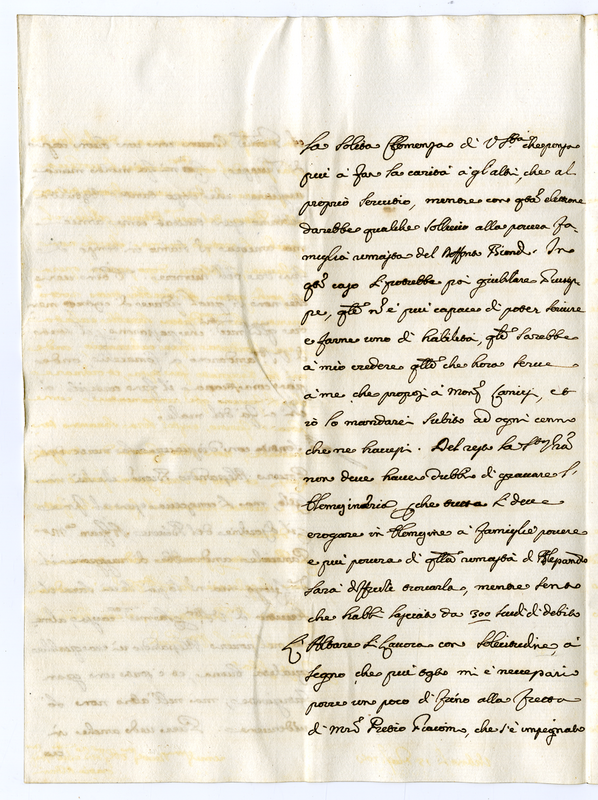 la solita Clemenza di V. Stà che penza
più à far la carità à gl'altri, che al
proprio servitio, mentre con qta elettione
darebbe qualche sollievo alla povera fa-
miglia rimasta del In
qto caso si potrebbe poi giubilare
pe, qle nō è più capace di poter servire
e farne uno di habilità, qle sarebbe
à mio credere qllo che hora serve
à me, che proposi à Monsr e
rò lo manderei subito ad ogni cenno
che ne havessi. Del resto la Stà Vra
non deve haver dubbio di gravare l'
che si deve
erogare in à famiglie povere
e più povera di qlla rimasta di
sarà difficile trovarla, mentre sento
che habbi lasciato da 300 scudi di debito
L'Altare si lavora con sollecitudine, à
segno, che più oggi mi è necessario
porre un poco di freno alla fretta
di Mro Pietro Giacomo, che s'è impegnato